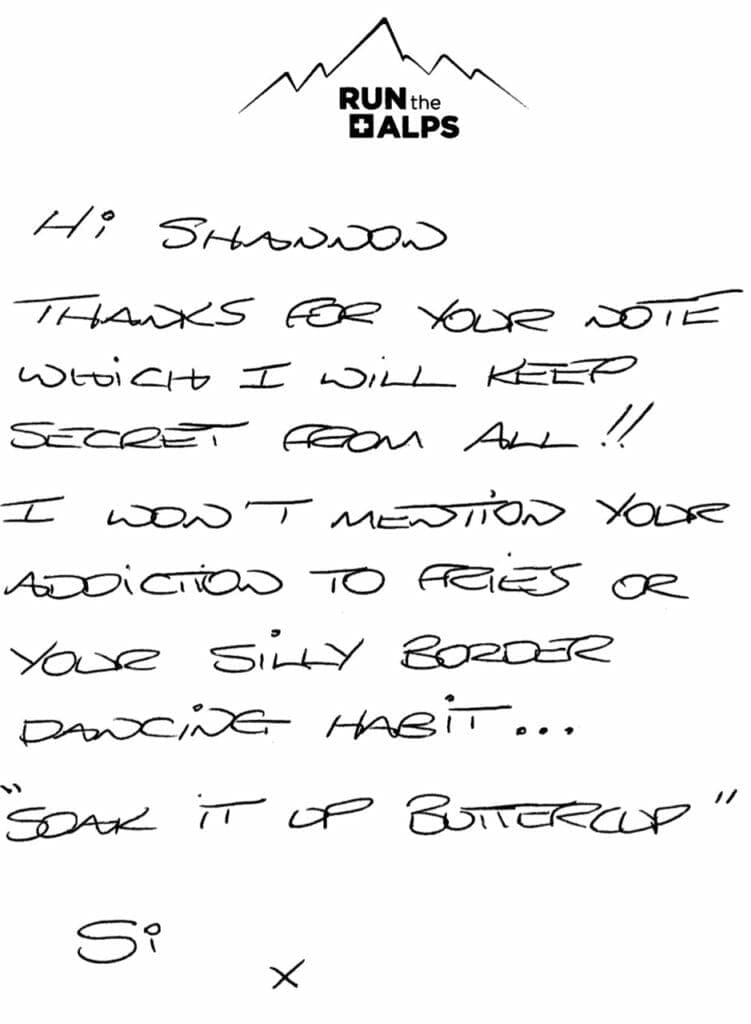 RUN the
ALPS
Hi SHANNON
THANKS FOR YOUR NOTE
WHiCH I WiLL KEEP
SECRET FROM ALL!!
I WON'T MENTiON YOUR
ADDiCTiON TO FRiES OR
YOUR SiLLY BORDER
DANCiNG HABiT...
"SOAK iT UP BUTTERCUP"
Si
X